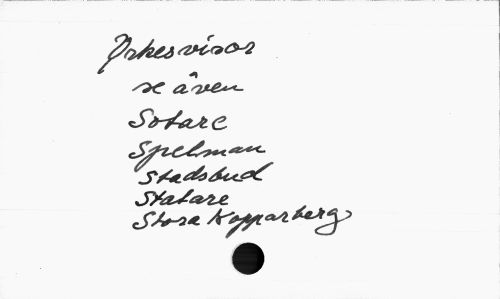 Yrkesvisor
se även
Sotare
Spelman
Stadsbud
Statare
Stora Kopparberg